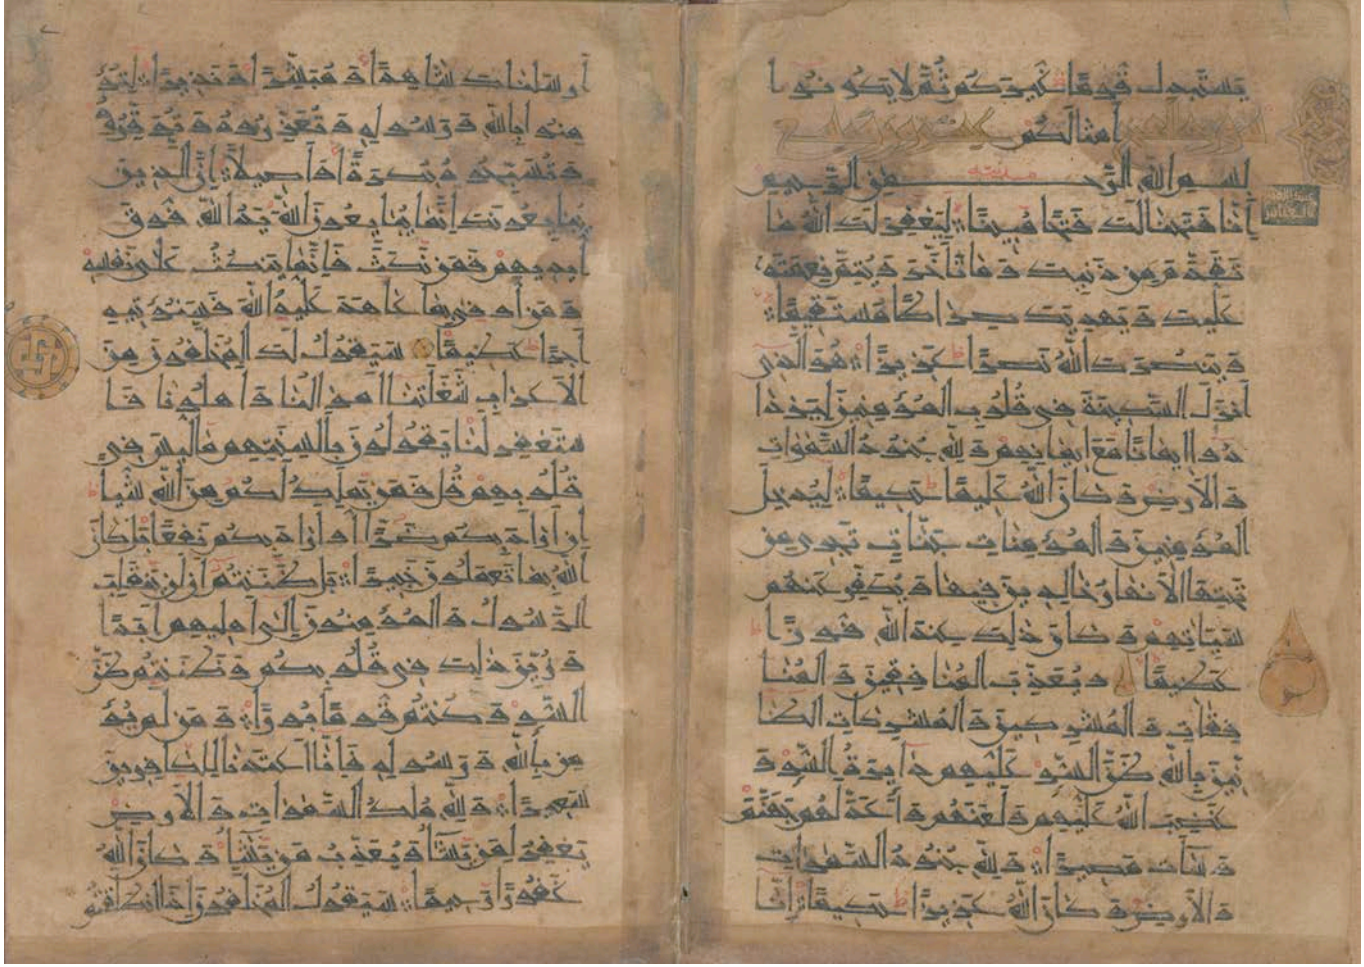 يستبدل قوما غيركم ثم لا يكونوا
أمثالكم
بسم الله الرحمن الرحيم
إنا فتحنا لك فتحا مبينا ليغفر لك الله ما
تقدم من ذنبك وما تأخر ويتم نعمته
عليك ويهديك صراطا مستقيما
وينصرك الله نصرا عزيزا هو الذي
أنزل السكينة في قلوب المؤمنين ليزدا
دوا إيمانا مع إيمانهم ولله جنود السموات
والأرض وكان الله عليما حكيما ليدخل
المؤمنين والمؤمنات جنات تجري من
تحتها الأنهار خالدين فيها ويكفر عنهم
سيئاتهم وكان ذلك عند الله فوزا
عظيما ويعذب المنافقين والمنا
فقات والمشركين والمشركات الظا
نين بالله ظن السوء عليهم دائرة السوء و
غضب الله عليهم ولعنهم وأعد لهم جهنم
وساءت مصيرا ولله جنود السموات
والأرض وكان الله عزيزا حكيما إنا
أرسلناك شاهدا ومبشرا ونذيرا لتؤ
منوا بالله ورسوله وتعزروه وتوقروه
وتسبحوه بكرة وأصيلا إن الذين
يبايعونك إنما يبايعون الله يد الله فوق
أيديهم فمن نكث فإنما ينكث على نفسه
ومن أوفى بما عاهد عليه الله فسيؤتيه
أجرا عظيما سيقول لك المخلفون من
الأعراب شغلتنا أموالنا وأهلونا فا
ستغفر لنا يقولون بألسنتهم ما ليس في
قلوبهم قل فمن يملك لكم من الله شيئا
إن أراد بكم ضرا أو أراد بكم نفعا بل كان
الله بما تعملون خبيرا بل ظننتم أن لن ينقلب
الرسول والمؤمنون إلى أهليهم أبدا
وزين ذلك في قلوبكم وظننتم ظن
السوء وكنتم قوما بورا ومن لم يؤ
من بالله ورسوله فإنا أعتدنا للكافرين
سعيرا ولله ملك السموات والأرض
يغفر لمن يشاء ويعذب من يشاء وكان الله
غفورا رحيما سيقول المخلفون إذا انطلقتم